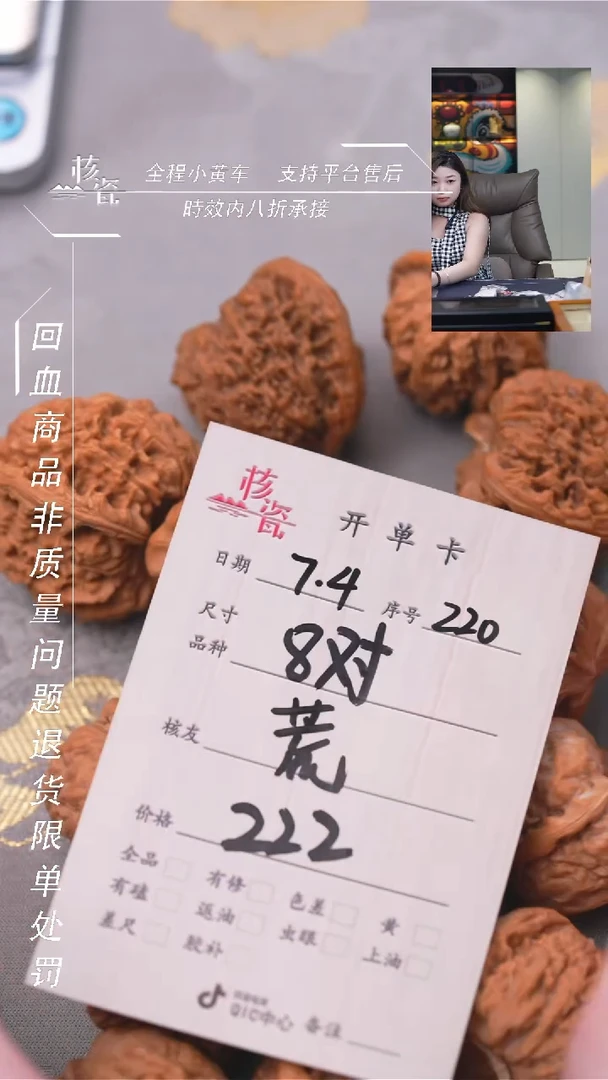 核瓷
全程小黄车 支持平台售后
時效内八折承接
回血商品非质量问题退货限单处罚
核瓷
开单卡
日期 7.4 序号 220
尺寸
品种 8对
核友 荒
价格 222
全品 有修 色差 黄
有磕 返油 虫眼 上油
差尺 胶补
QIC中心 备注